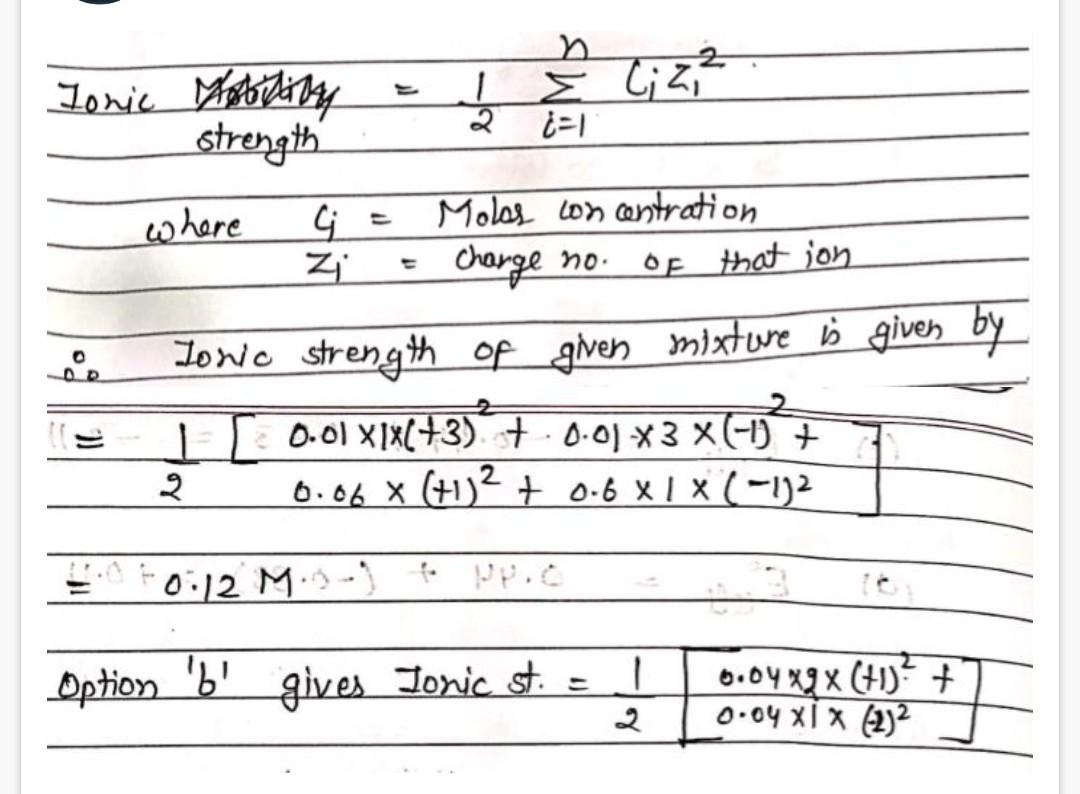 Ionic strength = 1/2 n Σ i=1 Ci Zi²
where Ci = Molar concentration
Zi = charge no. of that ion
∴ Ionic strength of given mixture is given by
= 1/2 [ 0.01 x1x(+3)² + 0.01 x 3 x (-1)² +
0.06 x (+1)² + 0.6 x 1 x (-1)² ]
= 0.12 M
Option 'b' gives Ionic st. = 1/2 [ 0.04 x2x (+1)² +
0.04 x1 x (-2)² ]